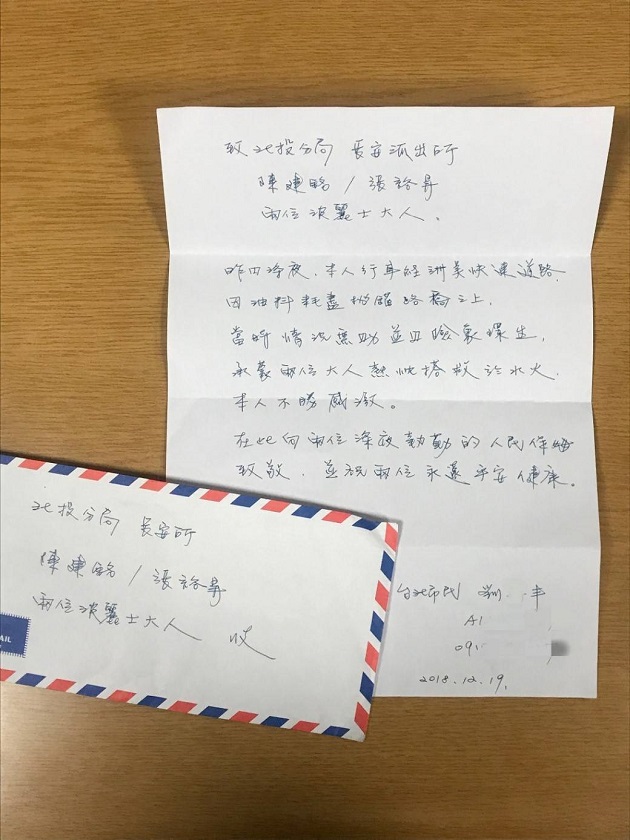 致 北投分局 長安派出所
陳建銘 / 張裕昇
兩位波麗士大人。
昨日深夜,本人行車經洲美快速道路,
因油料耗盡拋錨路橋之上,
當時情況無助並且險象環生,
承蒙兩位大人熱忱搭救於水火,
本人不勝感激。
在此向兩位深夜執勤的人民保姆
致敬,並祝兩位永遠平安健康。
台北市民 劉 丰
A1
09
2018.12.19.
北投分局 長安所
陳建銘 / 張裕昇
兩位波麗士大人 收
AIL